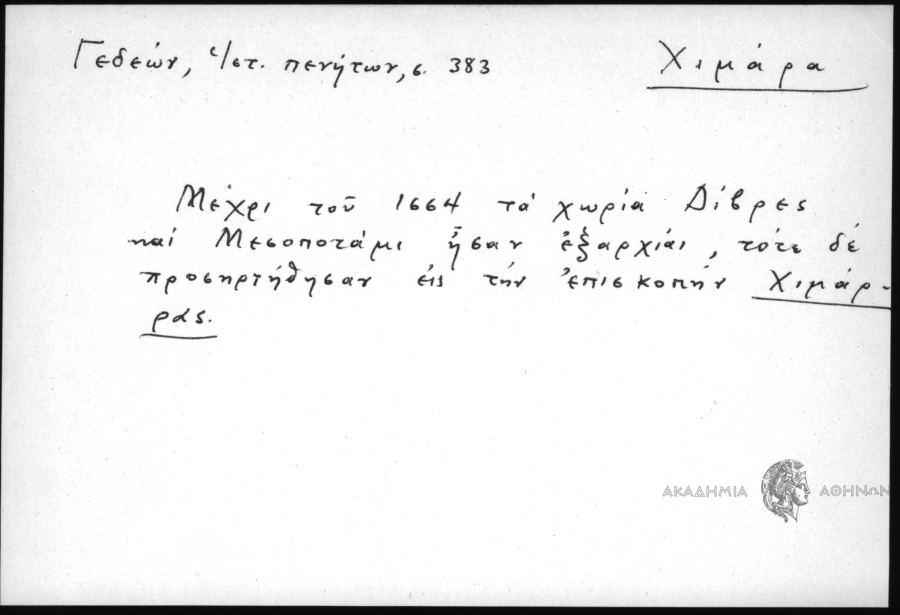 Γεδεών, Ἱστ. πενήτων, σ. 383
Χιμάρα
Μέχρι τοῦ 1664 τά χωρία Δίβρες
καί Μεσοποτάμι ἦσαν ἐξαρχίαι, τότε δέ
προσηρτήθησαν εἰς τήν ἐπισκοπήν Χιμάρ-
ρας.
ΑΚΑΔΗΜΙΑ ΑΘΗΝΩΝ